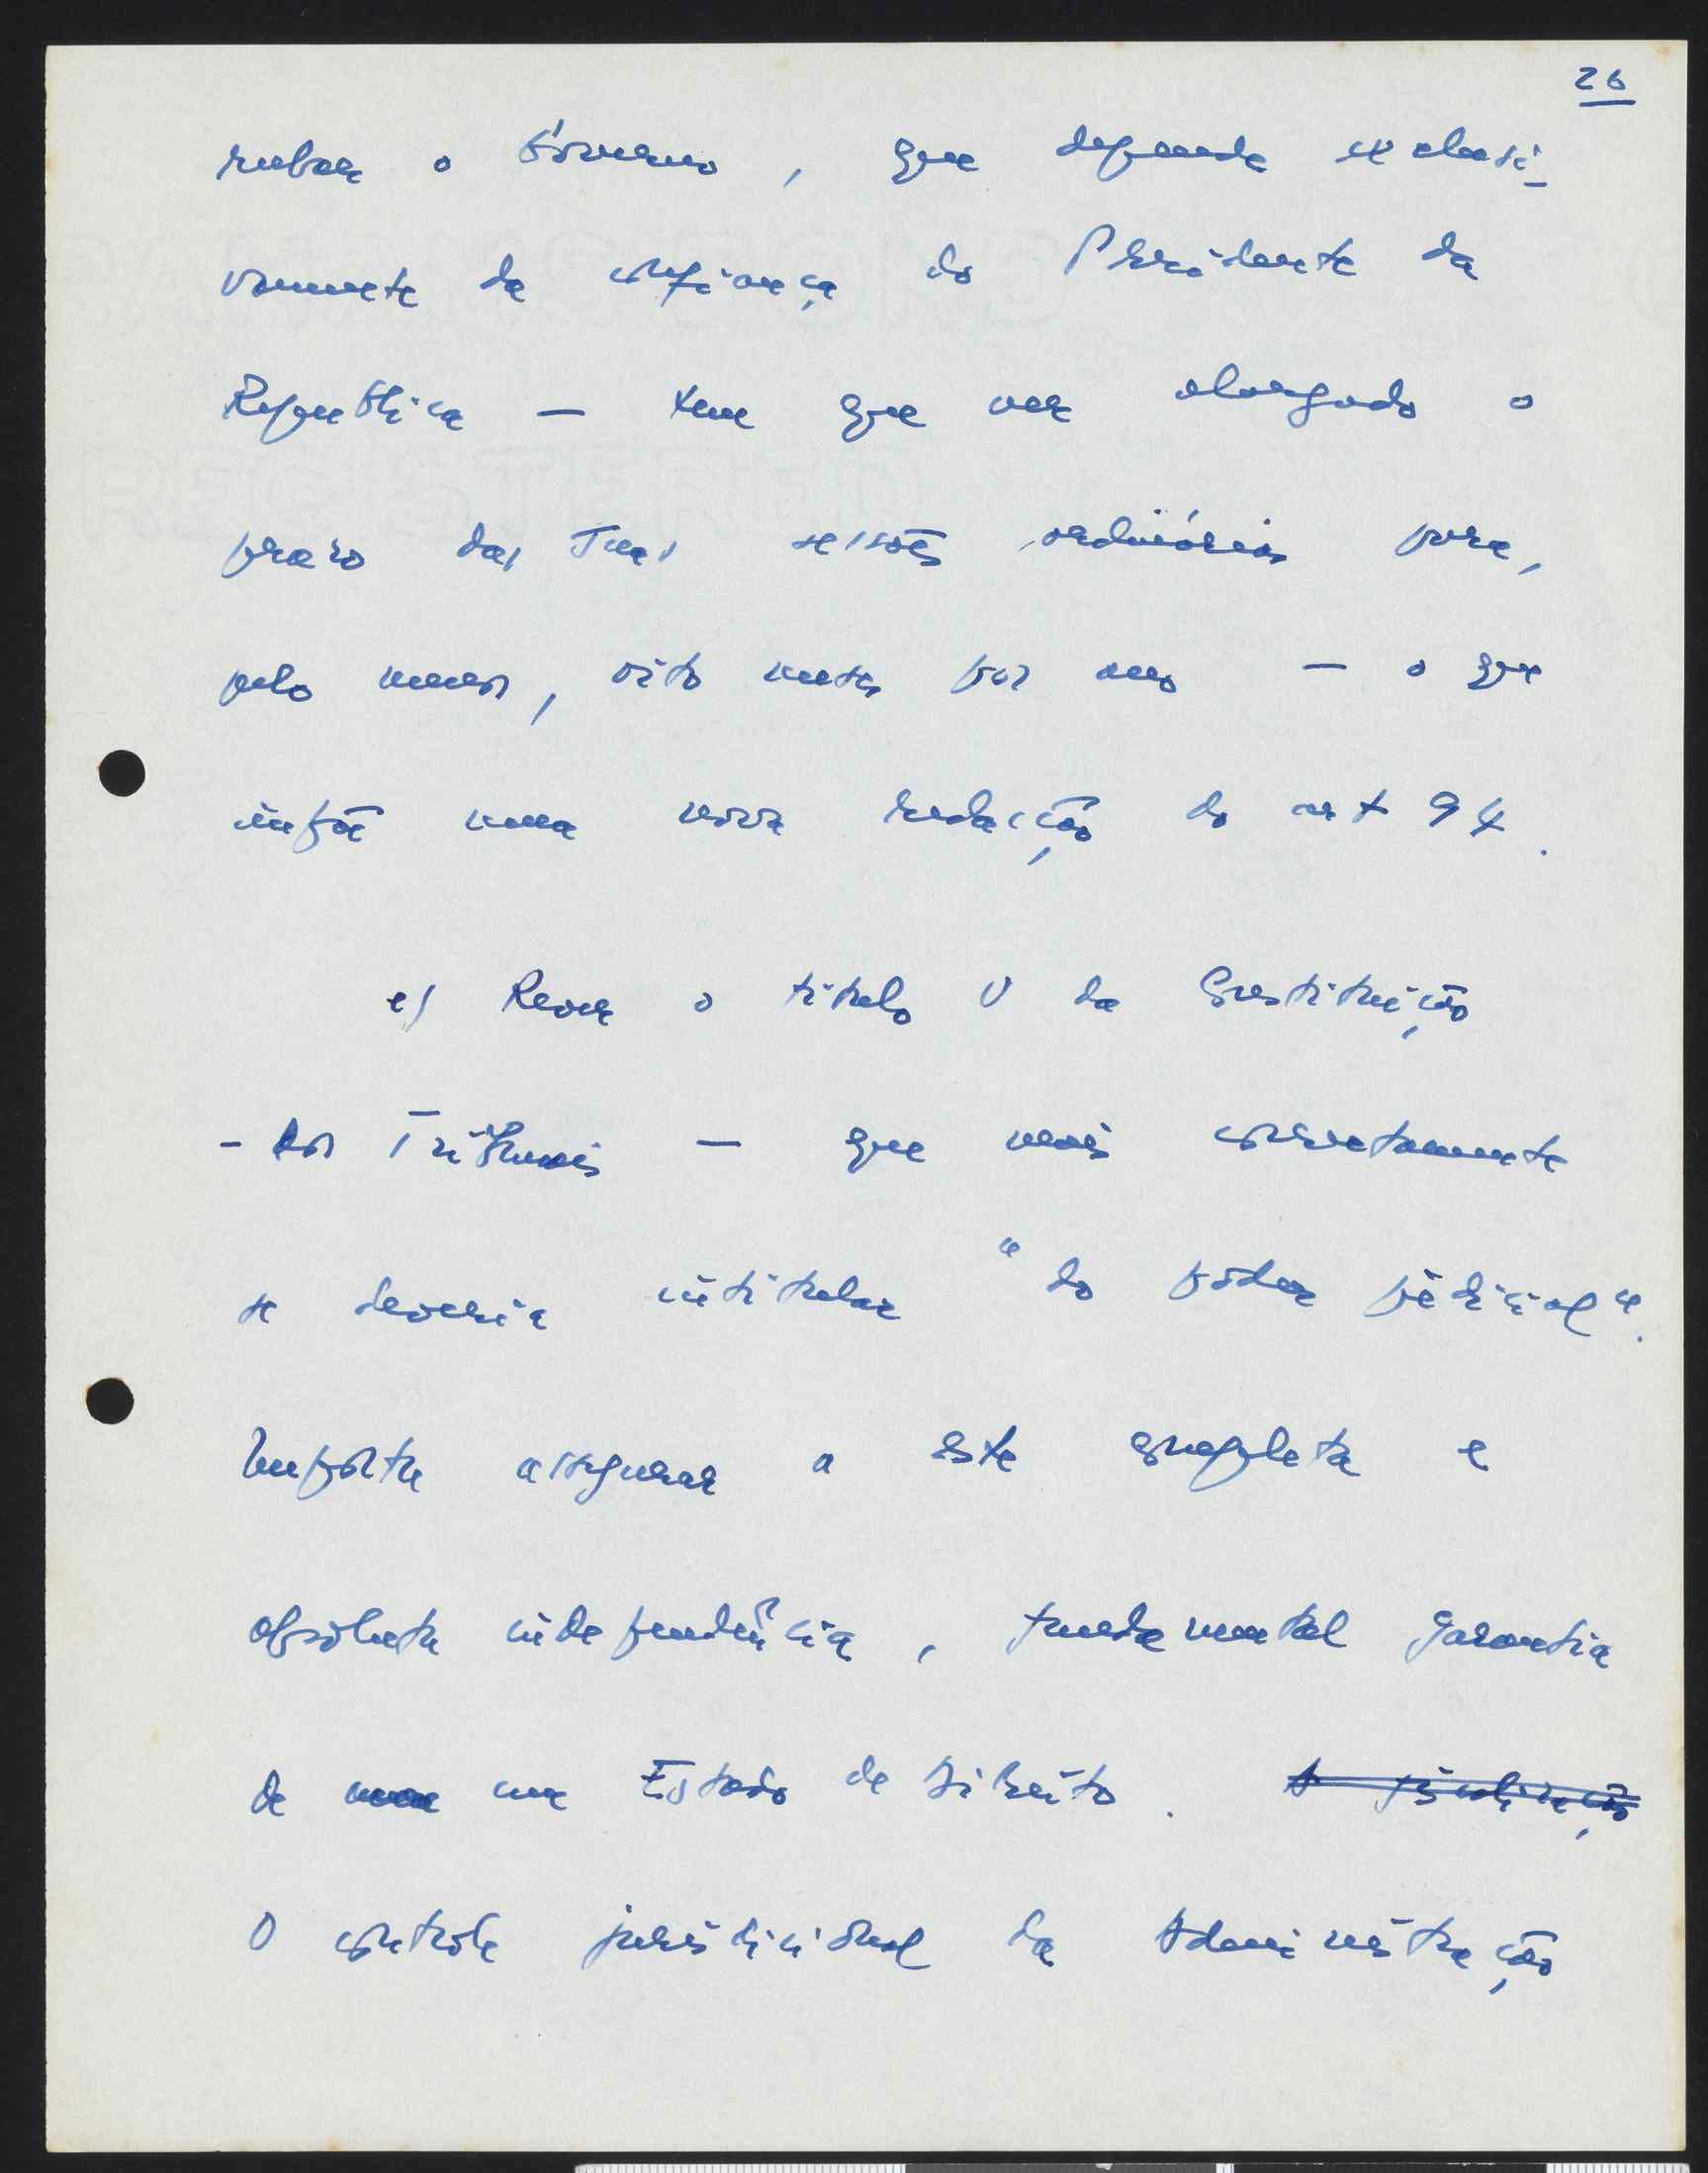 26
rubar o Govêrno, que depende exclusi-
vamente da confiança do Presidente da
Republica — tem que ver alargado o
prazo das suas sessões ordinárias para,
pelo menos, oito meses por ano — o que
impõe uma nova redacção do art 94.
e) Rever o titulo V da Constituição
- Dos Tribunais — que mais correctamente
se deveria intitular "do poder judicial".
Importa assegurar a este completa e
absoluta independência, fundamental garantia
de um Estado de Direito.
O controle jurisdicional da Administração